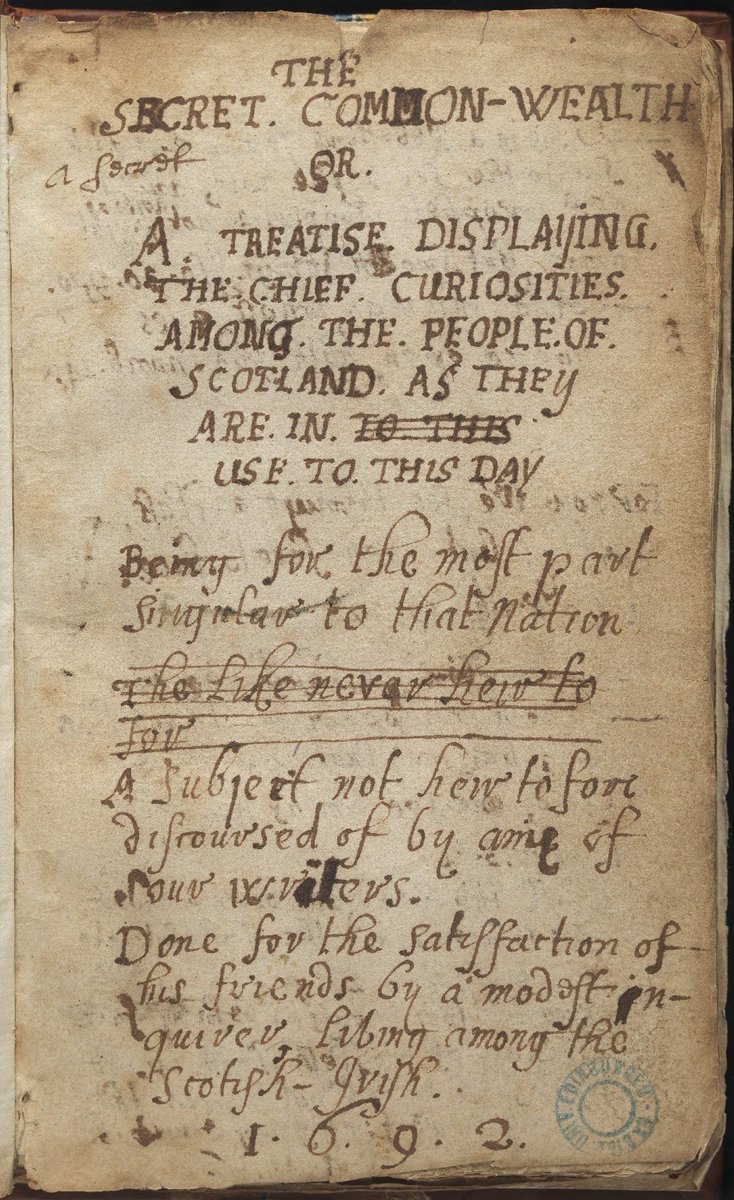 THE
SECRET. COMMON-WEALTH
a secret
OR.
A. TREATISE. DISPLAYING.
THE. CHIEF. CURIOSITIES.
AMONG. THE. PEOPLE. OF.
SCOTLAND. AS THEY
ARE. IN. TO THIS
USE. TO. THIS DAY
Being for the most part
singular to that Nation
The like never heir to
for
A Subject not heir to fore
discoursed of by any of
our writers.
Done for the satisfaction of
his friends by a modest in-
quirer, living among the
Scotish-Irish.
1. 6. 9. 2.